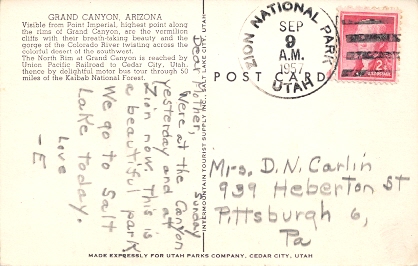 GRAND CANYON, ARIZONA
Visible from Point Imperial, highest point along
the rims of Grand Canyon, are the vermilion
cliffs with their breath-taking beauty and the
gorge of the Colorado River twisting across the
colorful desert of the southwest.
The North Rim at Grand Canyon is reached by
Union Pacific Railroad to Cedar City, Utah,
thence by delightful motor bus tour through 50
miles of the Kaibab National Forest.
Sunday
Dear Mother,
Were at the Canyon
yesterday and at
Zion now. This is
a beautiful park
We go to Salt
Lake today.
Love
-E
INTERMOUNTAIN TOURIST SUPPLY INC. SALT LAKE CITY, UTAH
ZION NATIONAL PARK
SEP
9
A.M.
1957
UTAH
POST CARD
2¢
Mrs. D. N. Carlin
939 Heberton St
Pittsburgh 6,
Pa
MADE EXPRESSLY FOR UTAH PARKS COMPANY, CEDAR CITY, UTAH